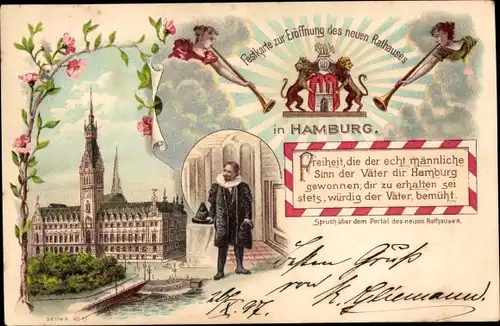 Festkarte zur Eröffnung des neuen Rathauses
in HAMBURG.
Freiheit, die der echt männliche
Sinn der Väter dir Hamburg
gewonnen, dir zu erhalten sei
stets, würdig der Väter, bemüht.
Spruch über dem Portal des neuen Rathauses.
Besten Gruß
von K. Gliemann.
97.